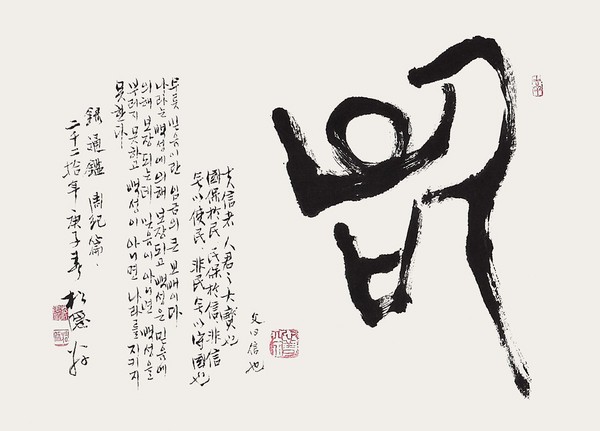 信
文曰信也
夫信者 人君之大寶也
國保於民 民保於信 非信
無以使民. 非民無以守國也
무릇 믿음이란 임금의 큰 보배이다.
나라는 백성에 의해 보장되고 백성은 믿음에
의해 보장되는데 믿음이 아니면 백성을
부리지 못하고 백성이 아니면 나라를 지키지
못한다
錄通鑑 周紀篇.
二千二拾年 庚子春 松隱